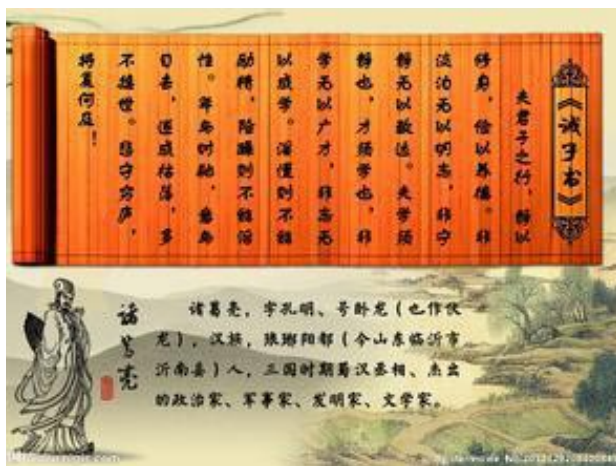 《诫子书》
夫君子之行，静以
修身，俭以养德。非
淡泊无以明志，非宁
静无以致远。夫学须
静也，才须学也，非
学无以广才，非志无
以成学。淫慢则不能
励精，险躁则不能治
性。年与时驰，意与
日去，遂成枯落，多
不接世。悲守穷庐，
将复何及！
诸葛亮
诸葛亮，字孔明、号卧龙（也作伏
龙），汉族，琅琊阳都（今山东临沂市
沂南县）人，三国时期蜀汉丞相、杰出
的政治家、军事家、发明家、文学家。